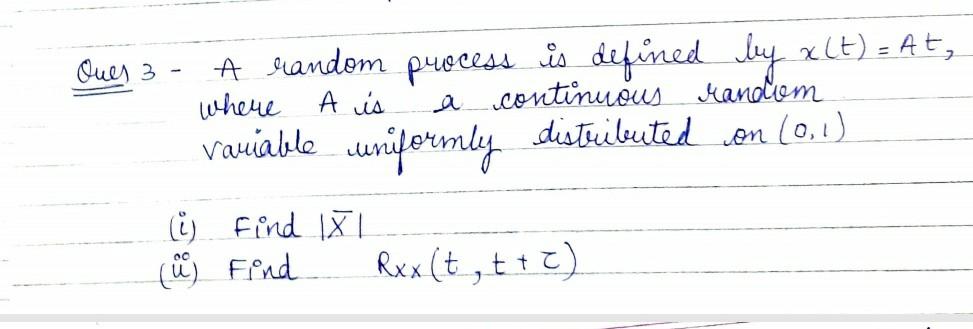 Ques 3 - A random process is defined by x(t) = At,
where A is a continuous random
variable uniformly distributed on (0,1)
(i) Find |X̅|
(ii) Find Rxx(t, t + τ)